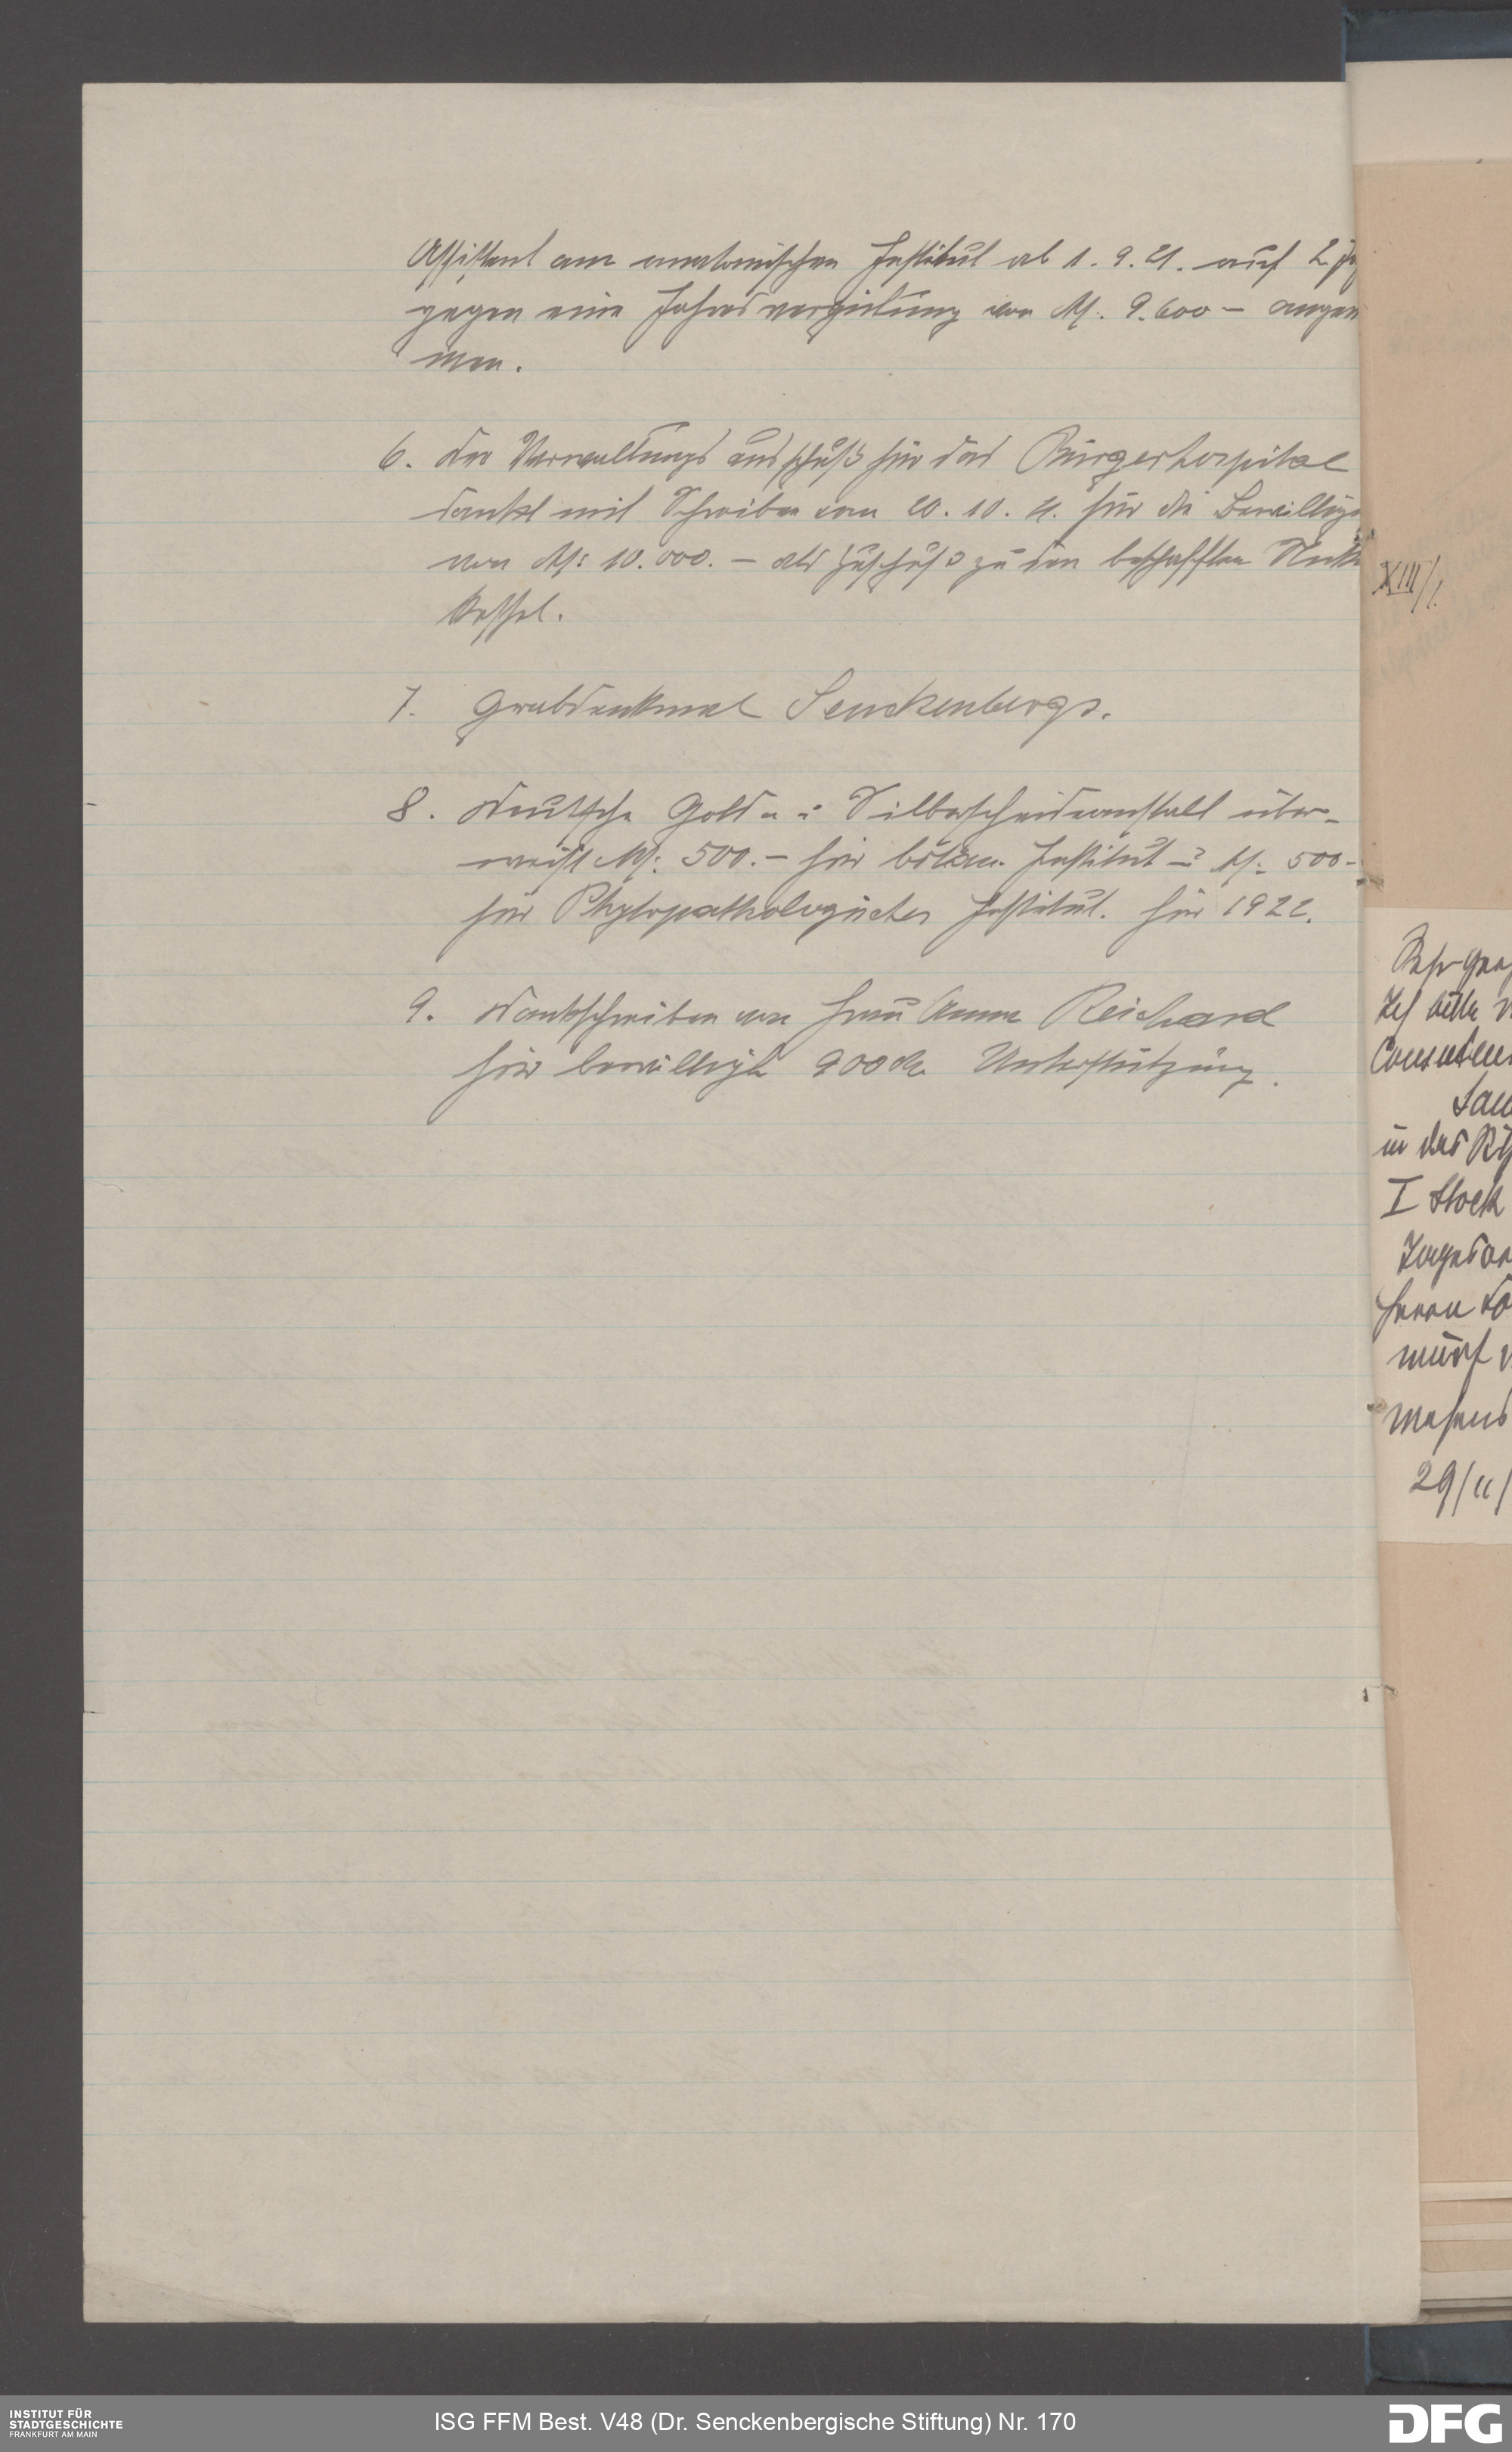 Assistent am anatomischen Institut ab 1. 9. 21. auf 2 Ja
gegen eine Jahresvergütung von M. 9.600 – angen
men.
6. Der Verwaltungsausschuß für das Bürgerhospital
dankt mit Schreiben vom 20. 10. 21. für die Bewilligu
von M: 10.000. – als Zuschuß zu den beschafften
Kessel.
7. Grabdenkmal Senckenbergs.
8. Deutsche Gold- u: Silberscheideanstalt über-
weist M: 500. – für botan. Institut u: M: 500 –
für Phytopathologisches Institut. für 1922.
9. Dankschreiben von Frau Anna Reichard
für bewilligte 900 M Unterstützung.
XIII/1.
Ich bitte
in das
I Stock
Tagesor
Herrn
29/11/
INSTITUT FÜR
STADTGESCHICHTE
FRANKFURT AM MAIN
ISG FFM Best. V48 (Dr. Senckenbergische Stiftung) Nr. 170
DFG